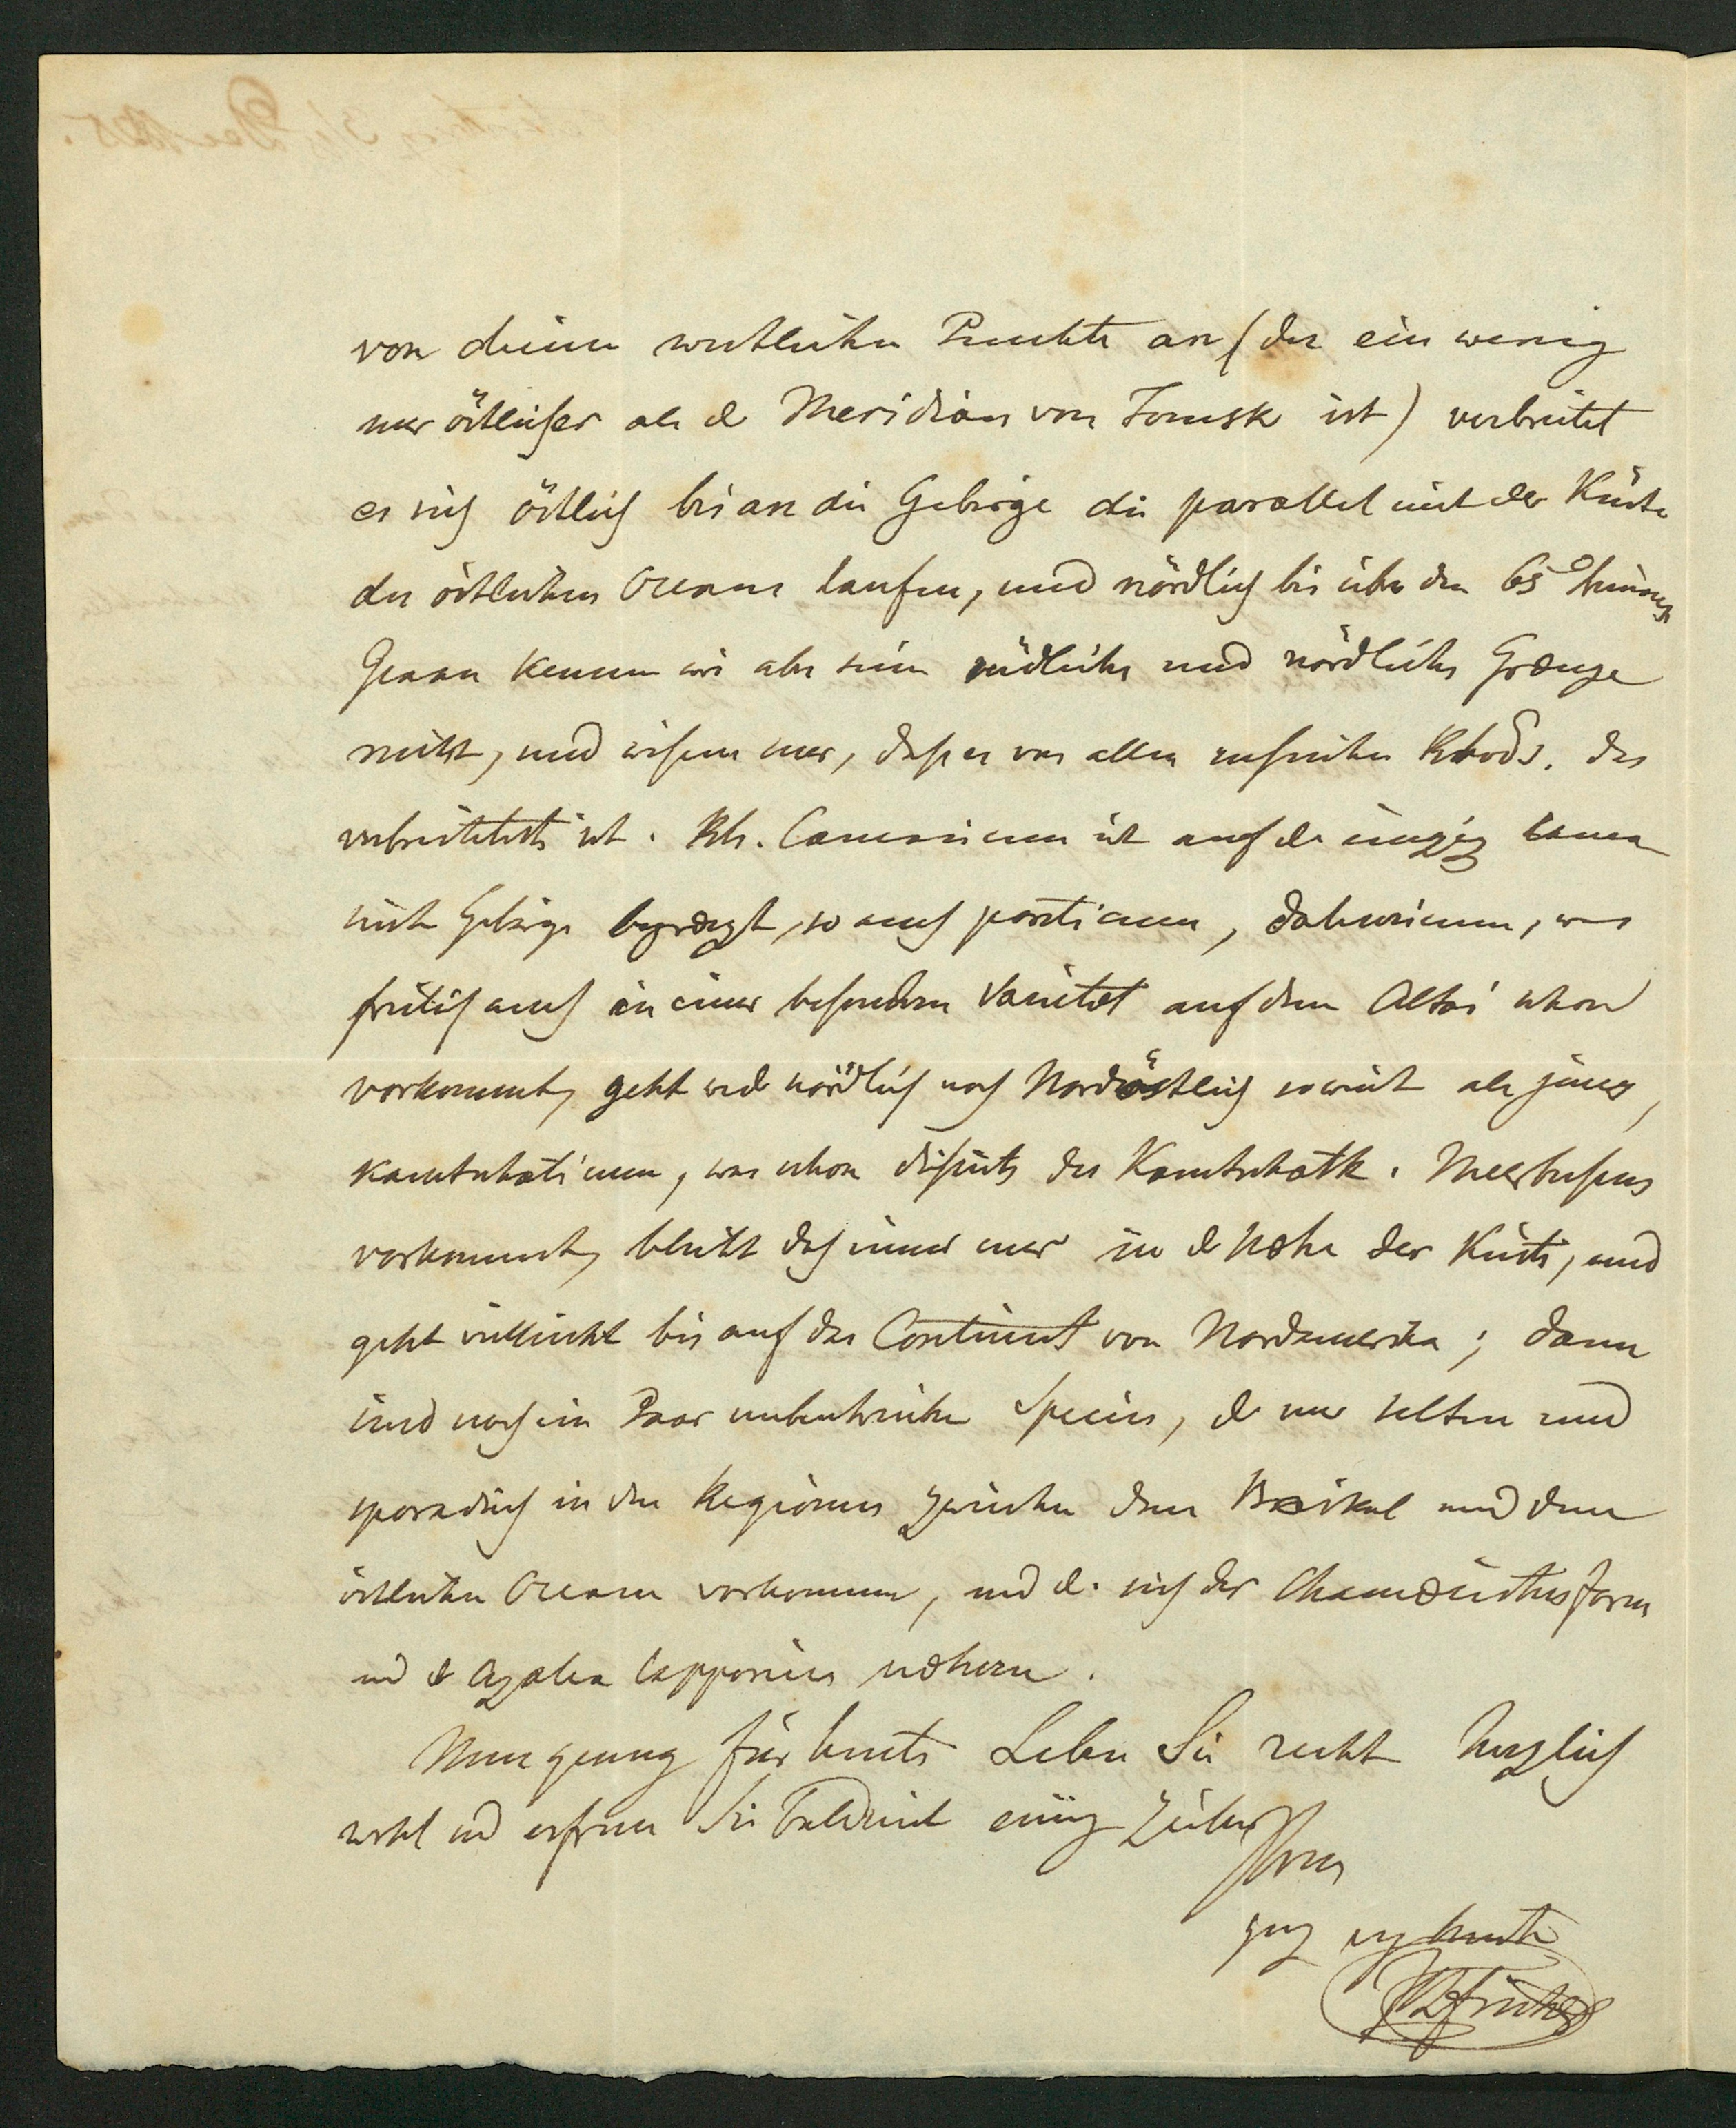 von diesem westlichen Punkte an (der ein wenig
nur östlicher als d Meridian von Tomsk ist) verbreitet
es sich östlich bis an die Gebirge die parallel mit der Küste
des östlichen Oceans laufen, und nördlich bis über den 65° hinaus
Genau kennen wir aber seine südliche und nördliche Grænze
nicht, und wissen nur, dass es von allen russischen Rhod. das
verbreiteteste ist. Rh. Caucasicum ist auf das einzige cauca
sische Gebirge begrænzt, so auch ponticum, dahuricum, was
freilich auch in einer besondern Varietæt auf dem Altai schon
vorkommt, geht wed nördlich noch Nordöstlich so weit als jenes,
kamtschaticum, was schon diseits des Kamtschatk. Meerbusens
vorkommt, bleibt doch immer nur in d Næhe der Küste, und
geht vielleicht bis auf das Continent von Nordamerika; dann
sind noch ein Paar unbeschriebene Species, die nur selten und
sporadisch in den Regionen zwischen dem Baikal und dem
östlichen Ocean vorkommen, und d. sich der Chamæcistusform
und d Azalea lapponica næhern.
Nun genug für heute Leben Sie recht herzlich
wohl und erfreuen Sie bald mit einig Zeilen
Ihren
ganz ergebensten
Fischer